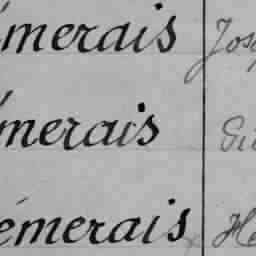 émerais Jos
émerais Gi
émerais He